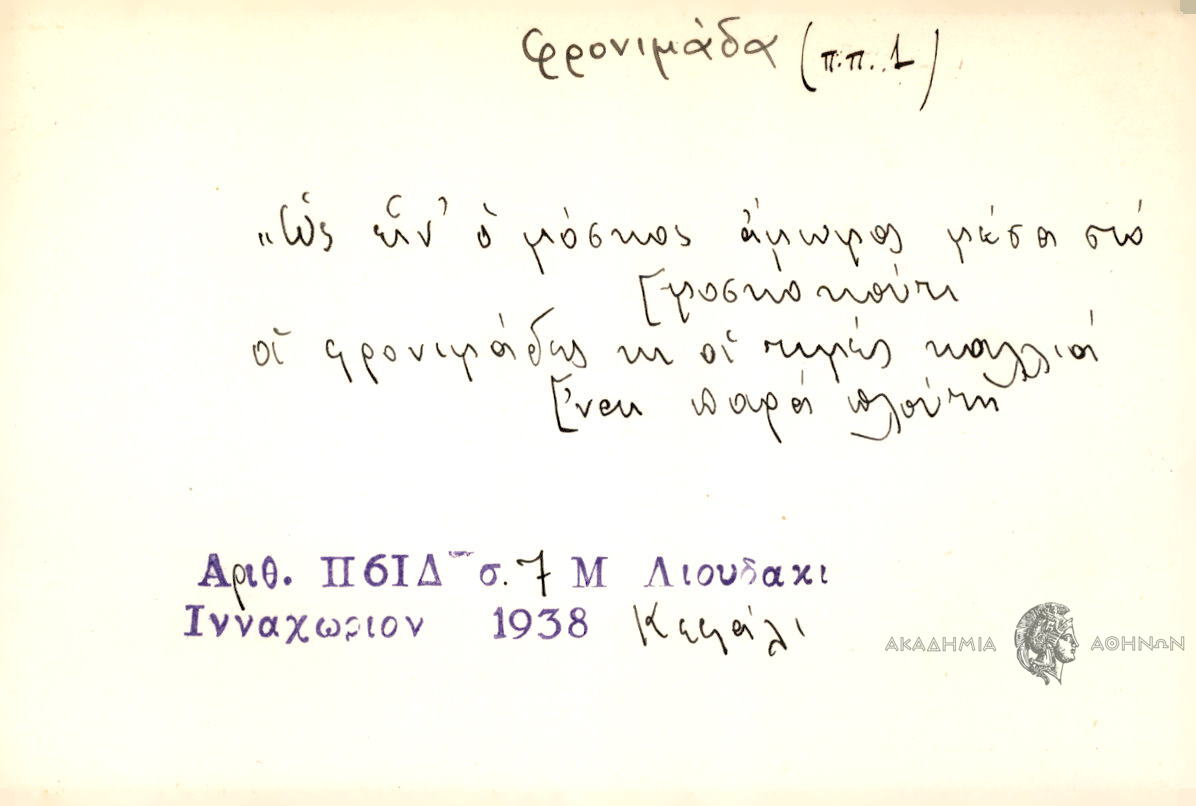 φρονιμάδα (π.π. 1)
„Ὡς εἶν' ὁ μόσκος ἄμωρος μέσα στό
[μοσκοκούτι
οἱ φρονιμάδες κι οἱ τιμές καλλιά
['ναι παρά πλούτη
Αριθ. ΠбΙΔ σ. 7 Μ Λιουδακι
Ινναχωριον 1938 Κεφάλι
ΑΚΑΔΗΜΙΑ ΑΘΗΝΩΝ